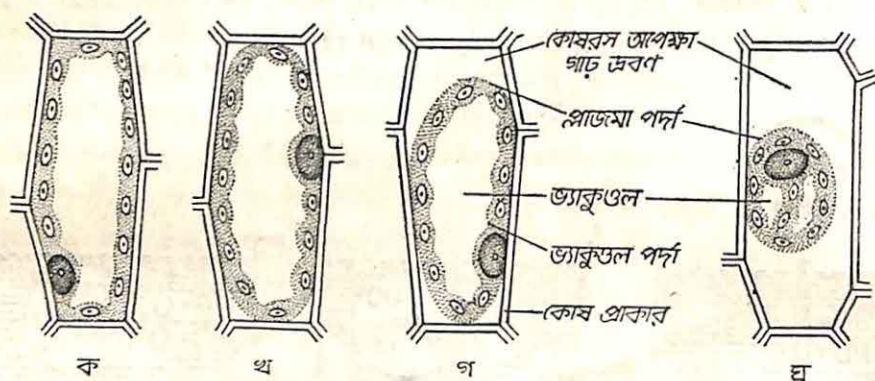 কোষরস অপেক্ষা
গাঢ় দ্রবণ
প্লাজমা পর্দা
ভ্যাকুওল
ভ্যাকুওল পর্দা
কোষ প্রাকার
ক খ গ ঘ